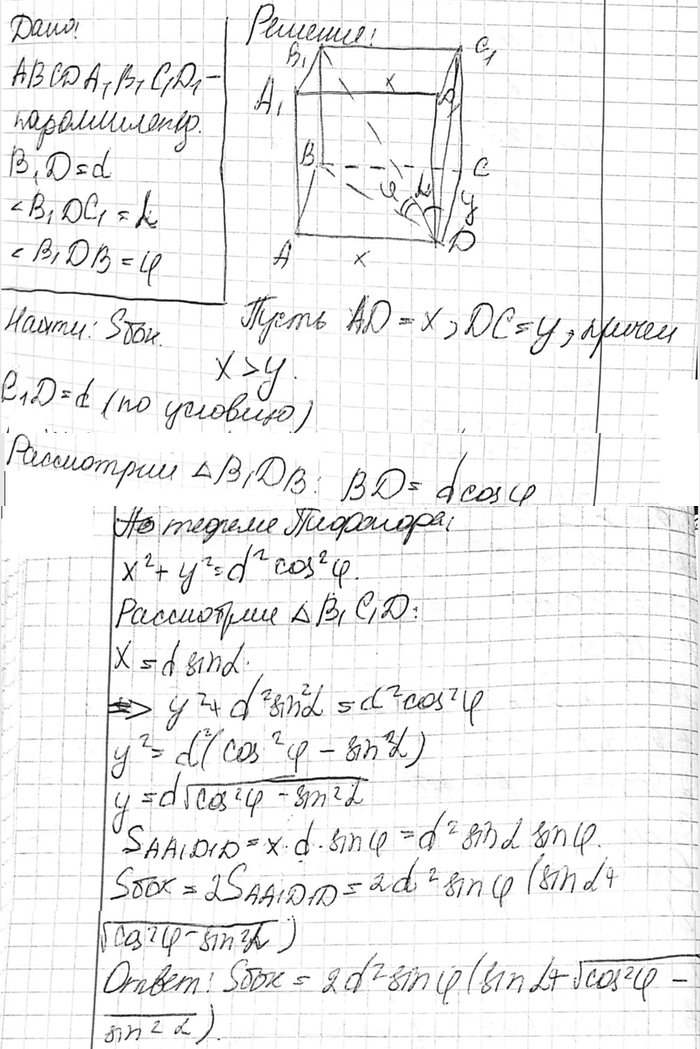 Дано:
ABCDA₁B₁C₁D₁ –
параллелепед.
B₁D=d
∠B₁DC₁=α
∠B₁DB=φ
Найти: Sбок.
Решение:
B₁ C₁
A₁ x D₁
B C
φ α y
A x D
Пусть AD=x, DC=y, причем
x>y.
C₁D=d (по условию)
Рассмотрим △B₁DB: BD= d cosφ
По теореме Пифагора:
x²+y²=d²cos²φ.
Рассмотрим △B₁C₁D:
x=d sinα.
=> y²+d²sin²α=d²cos²φ
y²=d²(cos²φ – sin²α)
y=d√cos²φ – sin²α
SAA₁D₁D=x·d·sinφ=d²sinα sinφ.
Sбок=2SAA₁D₁D=2d²sinφ(sinα+
√cos²φ–sin²α)
Ответ: Sбок=2d²sinφ(sinα+√cos²φ –
sin²α).